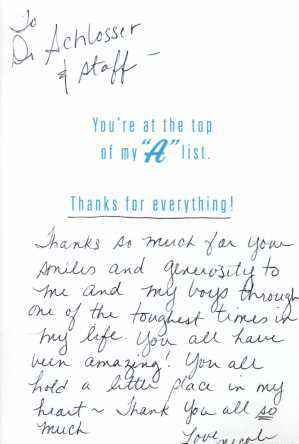 To
Dr Schlosser
& staff –
You're at the top
of my "A" list.
Thanks for everything!
Thanks so much for your
smiles and generosity to
me and my boys through
one of the toughest times in
my life. You all have
been amazing! You all
hold a little place in my
heart ~ Thank You all so
much
Love, Nicole